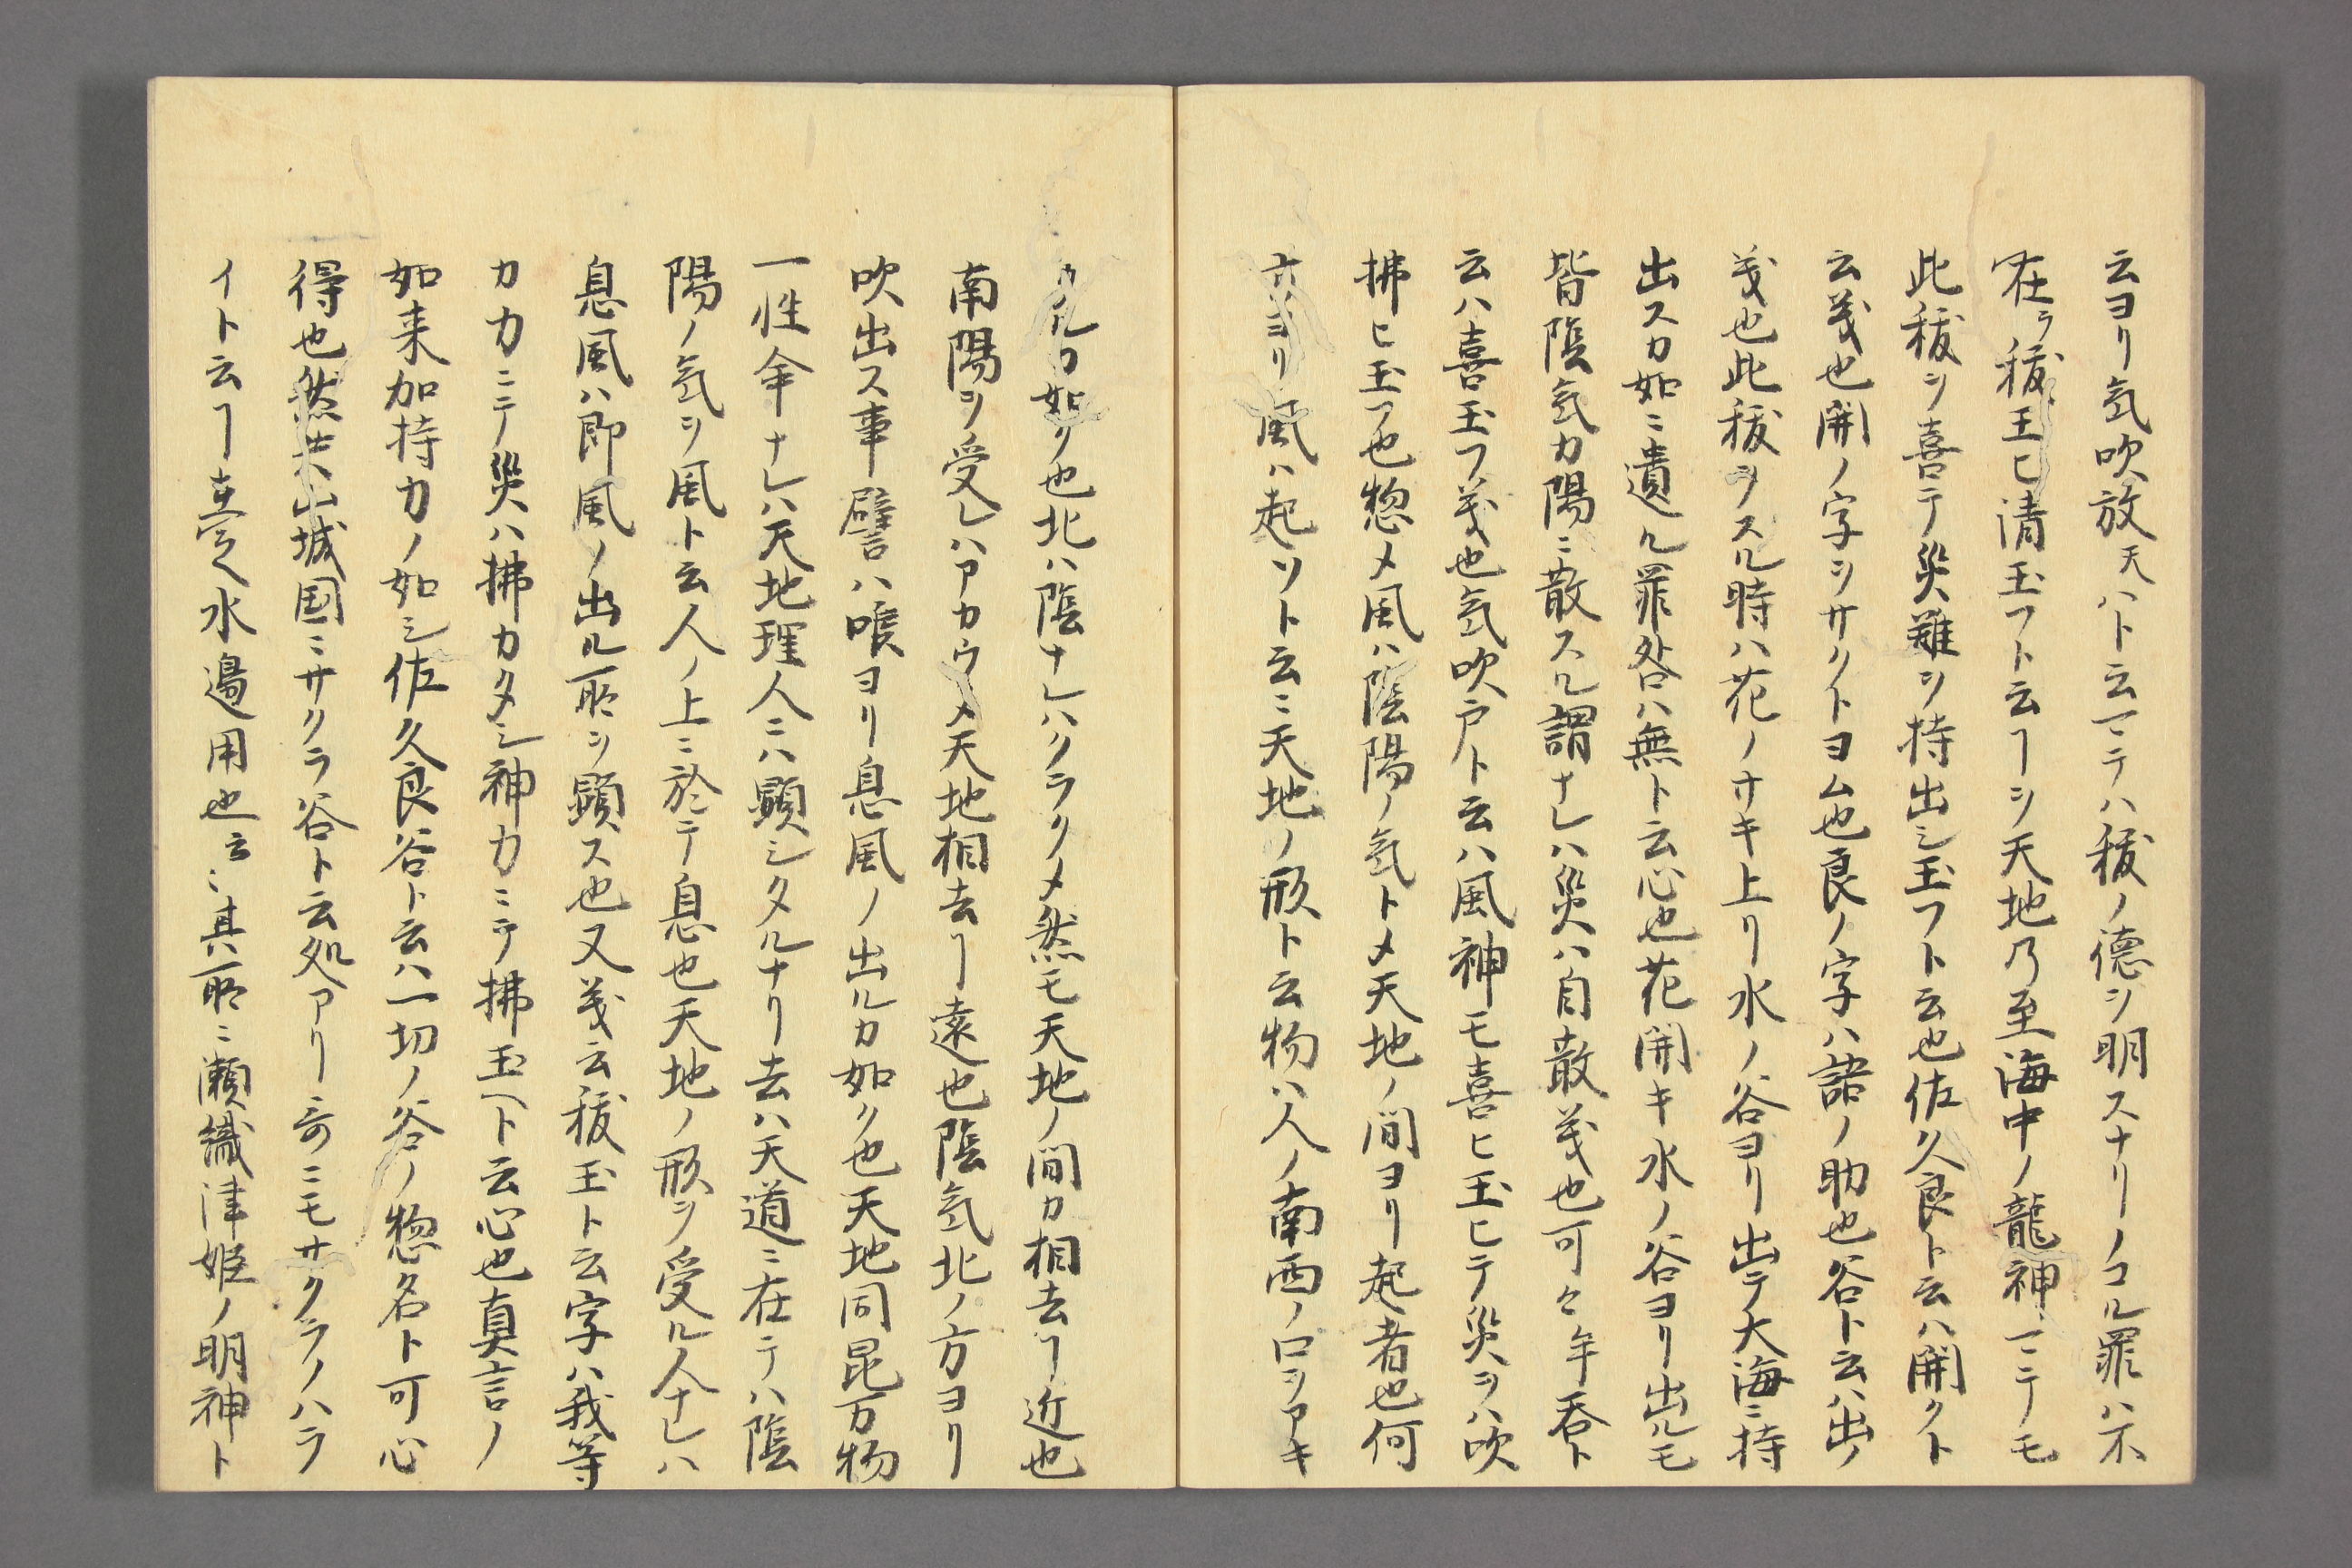 云ヨリ気吹放天ハト云マテハ秡ノ徳ヲ明スナリノコル罪ハ不
在ラ秡玉ヒ清玉フト云ヿヲ天地乃至海中ノ龍神マテモ
此秡ヲ喜テ災難ヲ持出シ玉フト云也佐久良ト云ハ開クト
云義也開ノ字ヲサクトヨム也良ノ字ハ語ノ助也谷ト云ハ出ノ
義也此秡ヲスル時ハ花ノサキ上リ水ノ谷ヨリ出テ大海ニ持
出スカ如ニ遺ル罪咎ハ無ト云心也花開キ水ノ谷ヨリ出ルモ
皆陰気カ陽ニ散スル謂ナレハ災ハ自散義也可々年呑ト
云ハ喜玉フ義也気吹戸ト云ハ風神モ喜ヒ玉ヒテ災ヲハ吹
拂ヒ玉フ也惣メ風ハ陰陽ノ気トメ天地ノ間ヨリ起者也何
トヨリ風ハ起ソト云ニ天地ノ形ト云物ハ人ノ南西ノ口ヲアキ
タルカ如ク也北ハ陰ナレハクラクメ然モ天地ノ間カ相去ヿ近也
南陽ヲ受レハアカウメ天地相去ヿ遠也陰気北ノ方ヨリ
吹出ス事譬ハ喉ヨリ息風ノ出ルカ如ク也天地同昆万物
一性命ナレハ天地理人ニハ顕シタルナリ去ハ天道ニ在テハ陰
陽ノ気ヲ風ト云人ノ上ニ於テ息也天地ノ形ヲ受ル人ナレハ
息風ハ即風ノ出ル所ヲ顕ス也又義云秡玉ト云字ハ我等
カ力ニテ災ハ拂カタシ神力ニテ拂玉ヘト云心也真言ノ
如来加持力ノ如シ佐久良谷ト云ハ一切ノ谷ノ惣名ト可心
得也然共山城国ニサクラ谷ト云処アリ哥ニモサクラノハラ
イト云ヿ水邊用也云々其所ニ瀬織津姫ノ明神ト